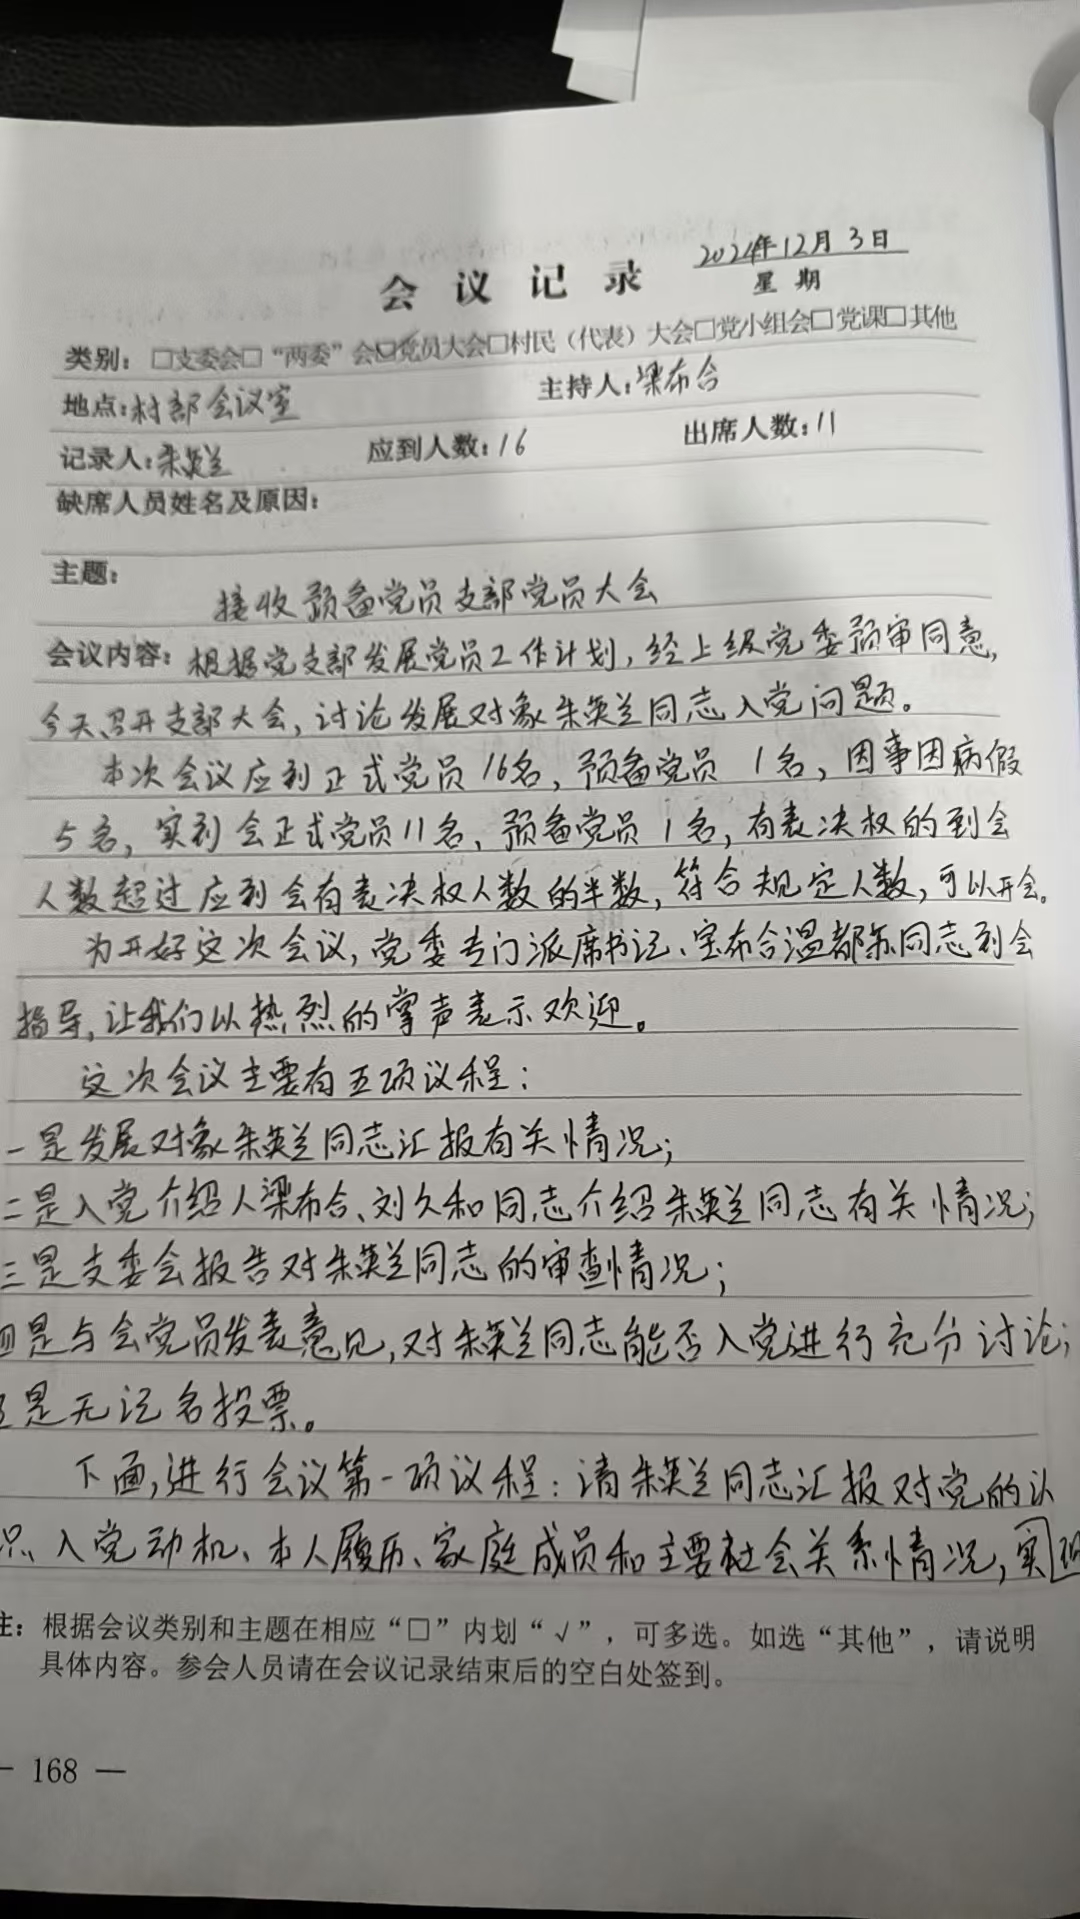 2024年12月3日
会议记录
星期
类别：□支委会□“两委”会☑党员大会□村民（代表）大会□党小组会□党课□其他
地点：村部会议室 主持人：梁布合
记录人：朱英兰 应到人数：16 出席人数：11
缺席人员姓名及原因：
主题：
接收预备党员支部党员大会
会议内容：根据党支部发展党员工作计划，经上级党委预审同意，
今天召开支部大会，讨论发展对象朱英兰同志入党问题。
本次会议应到正式党员16名，预备党员 1名，因事因病假
5名，实到会正式党员11名，预备党员1名，有表决权的到会
人数超过应到会有表决权人数的半数，符合规定人数，可以开会。
为开好这次会议，党委专门派席书记、宝布合温都苏同志到会
指导，让我们以热烈的掌声表示欢迎。
这次会议主要有五项议程：
一是发展对象朱英兰同志汇报有关情况；
二是入党介绍人梁布合、刘久和同志介绍朱英兰同志有关情况；
三是支委会报告对朱英兰同志的审查情况；
四是与会党员发表意见，对朱英兰同志能否入党进行充分讨论；
五是无记名投票。
下面，进行会议第一项议程：请朱英兰同志汇报对党的认
识、入党动机、本人履历、家庭成员和主要社会关系情况，实
注：根据会议类别和主题在相应“□”内划“√”，可多选。如选“其他”，请说明
具体内容。参会人员请在会议记录结束后的空白处签到。
— 168 —